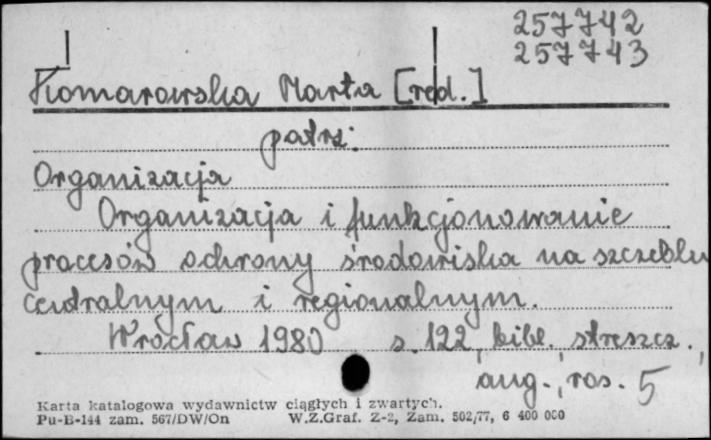 257742
257743
Komarowska Marta [red.]
patrz:
Organizacja
Organizacja i funkcjonowanie
procesów ochrony środowiska na szczeblu
centralnym i regionalnym.
Wrocław 1980 s. 122, bibl., streszcz.,
ang., ros. 5
Karta katalogowa wydawnictw ciągłych i zwartych.
Pu-B-144 zam. 567/DW/On W.Z.Graf. Z-2, Zam. 502/77, 6 400 000